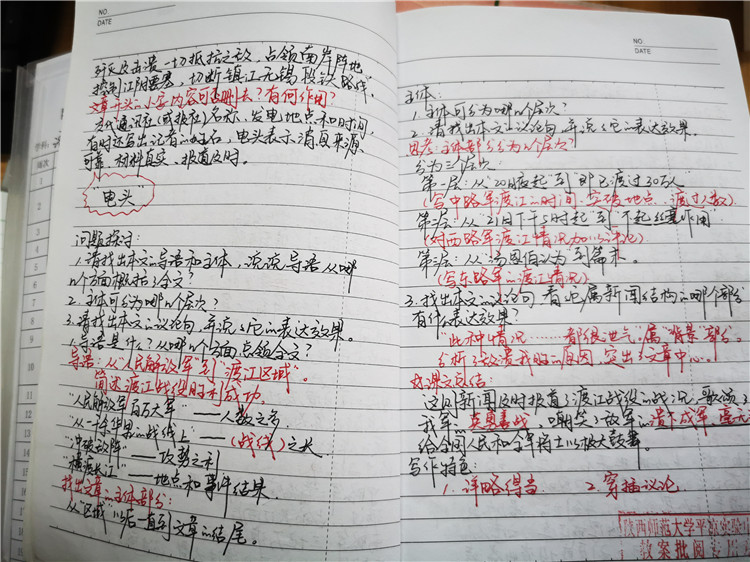 NO
DATE
歼灭及击溃一切抵抗之敌，占领南岸阵地
控制江阴要塞，切断镇江无锡段铁路线，
文章开头的小字内容可否删去？有何作用？
交代通讯社(或报社)名称、发电地点和时间，
有时还写出记者的姓名，电头表示消息来源
可靠、材料真实、报道及时。
电头
问题探讨：
1.请找出本文的导语和主体，说说导语从哪
几个方面概括了全文？
2.主体可分为哪几个层次？
3.请找出本文的议论句，并说说它的表达效果。
1.导语是什么？从哪几个方面总领全文？
导语：从"人民解放军"到"渡江区域"。
简述渡江战役的胜利成功。
"人民解放军百万大军"——人数之多
"从一千余华里的战线上"——(战线)之长
"冲破敌阵"——攻势之利
"横渡长江"——地点和事件结果
找出文章的主体部分：
从"区域"以后一直到文章的结尾。
NO.
DATE
主体：
1.主体可分为哪几个层次？
2.请找出本文的议论句，并说说它的表达效果。
思考：主体部分分为几个层次？
分为三个层次：
第一层：从"20日夜起"到"即已渡过30万人"
(写中路军渡江的时间、突破地点、渡过人数)
第二层：从"21日下午5时起"到"不起丝毫作用"
(对西路军渡江情况加以评论)
第三层：从"汤恩伯认为"到篇末。
(写东路军的渡江情况)
3.找出本文的议论句，看它属新闻结构的哪个部分
有什么表达效果？
"此种情况……都很泄气"属"背景"部分。
分析了敌溃我胜的原因，突出了文章中心。
课文总结：
这则新闻及时报道了渡江战役的战况，歌颂了
我军的英勇善战，嘲笑了敌军的溃不成军，毫无
给全国人民和全军将士以极大鼓舞。
写作特色：
1.详略得当 2.穿插议论
陕西师范大学平
教案批阅